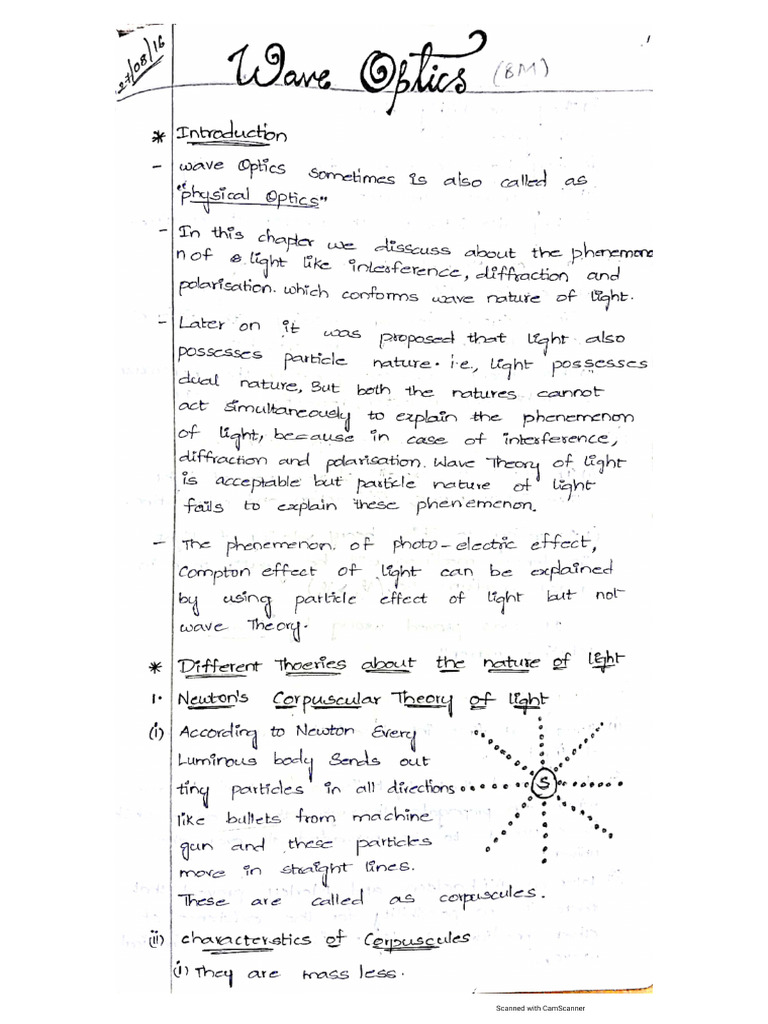 27/08/16
1
Wave Optics (BM)
* Introduction
- wave Optics sometimes is also called as
"physical Optics"
- In this chapter we disscuss about the phenemone
n of light like interference, diffraction and
polarisation. which conforms wave nature of light.
- Later on it was proposed that light also
possesses particle nature. i.e., light possesses
dual nature, But both the natures cannot
act simultaneously to explain the phenemenon
of light, because in case of interference,
diffraction and polarisation. Wave Theory of light
is acceptable but particle nature of light
fails to explain these phenemenon.
- The phenemenon. of photo-electric effect,
Compton effect of light can be explained
by using particle effect of light but not
wave Theory.
* Different Thoeries about the nature of light
1. Newton's Corpuscular Theory of light
(i) According to Newton Every
Luminous body Sends out
tiny particles in all directions
S
like bullets from machine
gun and these particles
move in straight lines.
These are called as corpuscules.
(ii) characteristics of Corpuscules
(i) They are mass less.
Scanned with CamScanner